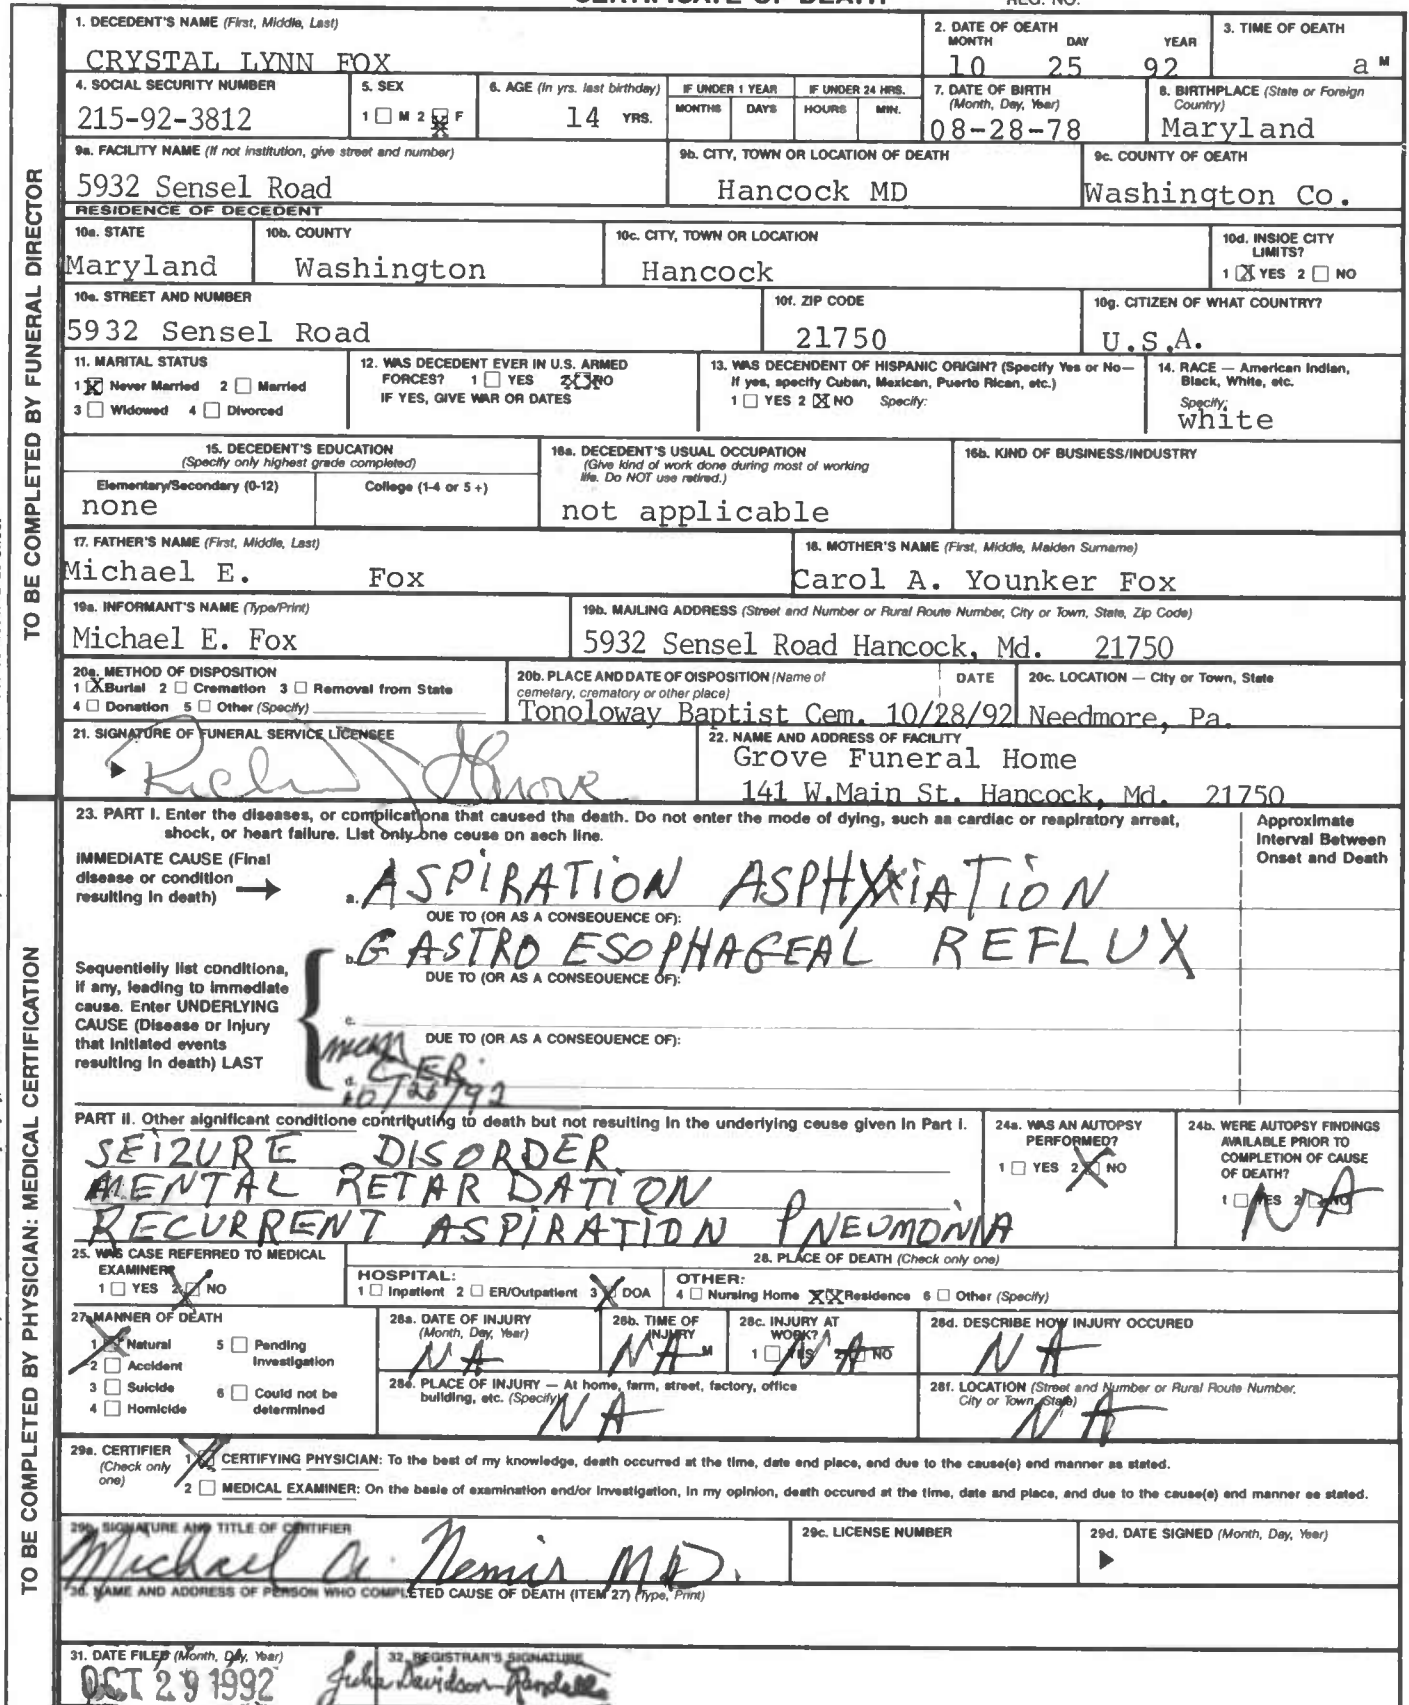 CERTIFICATE OF DEATH REG. NO.
1. DECEDENT'S NAME (First, Middle, Last)
CRYSTAL LYNN FOX
2. DATE OF DEATH
MONTH DAY YEAR
10 25 92
3. TIME OF DEATH
a M
4. SOCIAL SECURITY NUMBER
215-92-3812
5. SEX
1 ☐ M 2 ☒ F
6. AGE (In yrs. last birthday)
14 YRS.
IF UNDER 1 YEAR
MONTHS DAYS
IF UNDER 24 HRS.
HOURS MIN.
7. DATE OF BIRTH
(Month, Day, Year)
08-28-78
8. BIRTHPLACE (State or Foreign
Country)
Maryland
9a. FACILITY NAME (If not institution, give street and number)
5932 Sensel Road
9b. CITY, TOWN OR LOCATION OF DEATH
Hancock MD
9c. COUNTY OF DEATH
Washington Co.
RESIDENCE OF DECEDENT
10a. STATE
Maryland
10b. COUNTY
Washington
10c. CITY, TOWN OR LOCATION
Hancock
10d. INSIDE CITY
LIMITS?
1 ☒ YES 2 ☐ NO
10e. STREET AND NUMBER
5932 Sensel Road
10f. ZIP CODE
21750
10g. CITIZEN OF WHAT COUNTRY?
U.S.A.
11. MARITAL STATUS
1 ☒ Never Married 2 ☐ Married
3 ☐ Widowed 4 ☐ Divorced
12. WAS DECEDENT EVER IN U.S. ARMED
FORCES? 1 ☐ YES 2 ☒ NO
IF YES, GIVE WAR OR DATES
13. WAS DECENDENT OF HISPANIC ORIGIN? (Specify Yes or No—
If yes, specify Cuban, Mexican, Puerto Rican, etc.)
1 ☐ YES 2 ☒ NO Specify:
14. RACE — American Indian,
Black, White, etc.
Specify:
white
15. DECEDENT'S EDUCATION
(Specify only highest grade completed)
Elementary/Secondary (0-12) College (1-4 or 5+)
none
16a. DECEDENT'S USUAL OCCUPATION
(Give kind of work done during most of working
life. Do NOT use retired.)
not applicable
16b. KIND OF BUSINESS/INDUSTRY
17. FATHER'S NAME (First, Middle, Last)
Michael E. Fox
18. MOTHER'S NAME (First, Middle, Maiden Surname)
Carol A. Younker Fox
19a. INFORMANT'S NAME (Type/Print)
Michael E. Fox
19b. MAILING ADDRESS (Street and Number or Rural Route Number, City or Town, State, Zip Code)
5932 Sensel Road Hancock, Md. 21750
20a. METHOD OF DISPOSITION
1 ☒ Burial 2 ☐ Cremation 3 ☐ Removal from State
4 ☐ Donation 5 ☐ Other (Specify)
20b. PLACE AND DATE OF DISPOSITION (Name of
cemetary, crematory or other place) DATE
Tonoloway Baptist Cem. 10/28/92
20c. LOCATION — City or Town, State
Needmore, Pa.
21. SIGNATURE OF FUNERAL SERVICE LICENSEE
Grove
22. NAME AND ADDRESS OF FACILITY
Grove Funeral Home
141 W.Main St. Hancock, Md. 21750
TO BE COMPLETED BY FUNERAL DIRECTOR
23. PART I. Enter the diseases, or complications that caused the death. Do not enter the mode of dying, such as cardiac or respiratory arrest,
shock, or heart failure. List only one cause on each line.
Approximate
Interval Between
Onset and Death
IMMEDIATE CAUSE (Final
disease or condition
resulting in death) →
a. ASPIRATION ASPHYXIATION
DUE TO (OR AS A CONSEQUENCE OF):
b. GASTRO ESOPHAGEAL REFLUX
DUE TO (OR AS A CONSEQUENCE OF):
Sequentially list conditions,
if any, leading to immediate
cause. Enter UNDERLYING
CAUSE (Disease or injury
that initiated events
resulting in death) LAST
c.
DUE TO (OR AS A CONSEQUENCE OF):
d.
10/26/92
PART II. Other significant conditions contributing to death but not resulting in the underlying cause given in Part I.
SEIZURE DISORDER
MENTAL RETARDATION
RECURRENT ASPIRATION PNEUMONIA
24a. WAS AN AUTOPSY
PERFORMED?
1 ☐ YES 2 ☒ NO
24b. WERE AUTOPSY FINDINGS
AVAILABLE PRIOR TO
COMPLETION OF CAUSE
OF DEATH?
1 ☐ YES 2 ☐ NO
NA
25. WAS CASE REFERRED TO MEDICAL
EXAMINER?
1 ☐ YES 2 ☒ NO
26. PLACE OF DEATH (Check only one)
HOSPITAL:
1 ☐ Inpatient 2 ☐ ER/Outpatient 3 ☒ DOA
OTHER:
4 ☐ Nursing Home XX Residence 6 ☐ Other (Specify)
27. MANNER OF DEATH
1 ☒ Natural 5 ☐ Pending
Investigation
2 ☐ Accident
3 ☐ Suicide 6 ☐ Could not be
determined
4 ☐ Homicide
28a. DATE OF INJURY
(Month, Day, Year)
NA
28b. TIME OF
INJURY
NA M
28c. INJURY AT
WORK?
1 ☐ YES 2 ☐ NO
NA
28d. DESCRIBE HOW INJURY OCCURED
NA
28e. PLACE OF INJURY — At home, farm, street, factory, office
building, etc. (Specify)
NA
28f. LOCATION (Street and Number or Rural Route Number,
City or Town, State)
NA
29a. CERTIFIER
(Check only
one)
1 ☒ CERTIFYING PHYSICIAN: To the best of my knowledge, death occurred at the time, date end place, and due to the cause(s) end manner as stated.
2 ☐ MEDICAL EXAMINER: On the basis of examination end/or investigation, in my opinion, death occured at the time, date and place, and due to the cause(s) end manner as stated.
29b. SIGNATURE AND TITLE OF CERTIFIER
Michael A. Nemir MD.
29c. LICENSE NUMBER
29d. DATE SIGNED (Month, Day, Year)
30. NAME AND ADDRESS OF PERSON WHO COMPLETED CAUSE OF DEATH (ITEM 27) (Type, Print)
31. DATE FILED (Month, Day, Year)
OCT 29 1992
32. REGISTRAR'S SIGNATURE
Julia Davidson-Randall
TO BE COMPLETED BY PHYSICIAN: MEDICAL CERTIFICATION